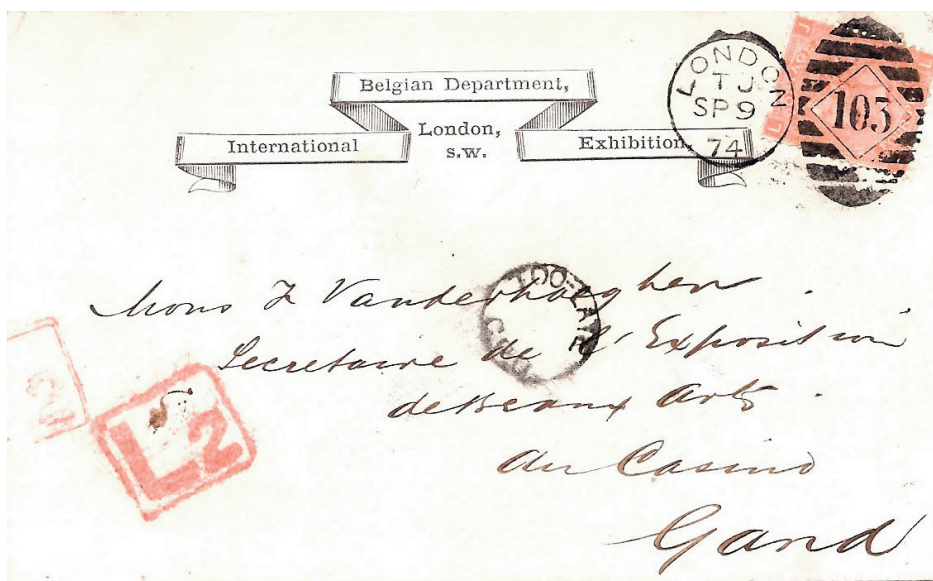 Belgian Department,
International
London,
S.W.
Exhibition,
LONDON
TJ
SP 9
74
103
J
L
L
TOO-LATE
Mons J Vanderhaeghen
Secretaire de l'Exposition
de Beaux Arts
au Casino
Gand
2
L2